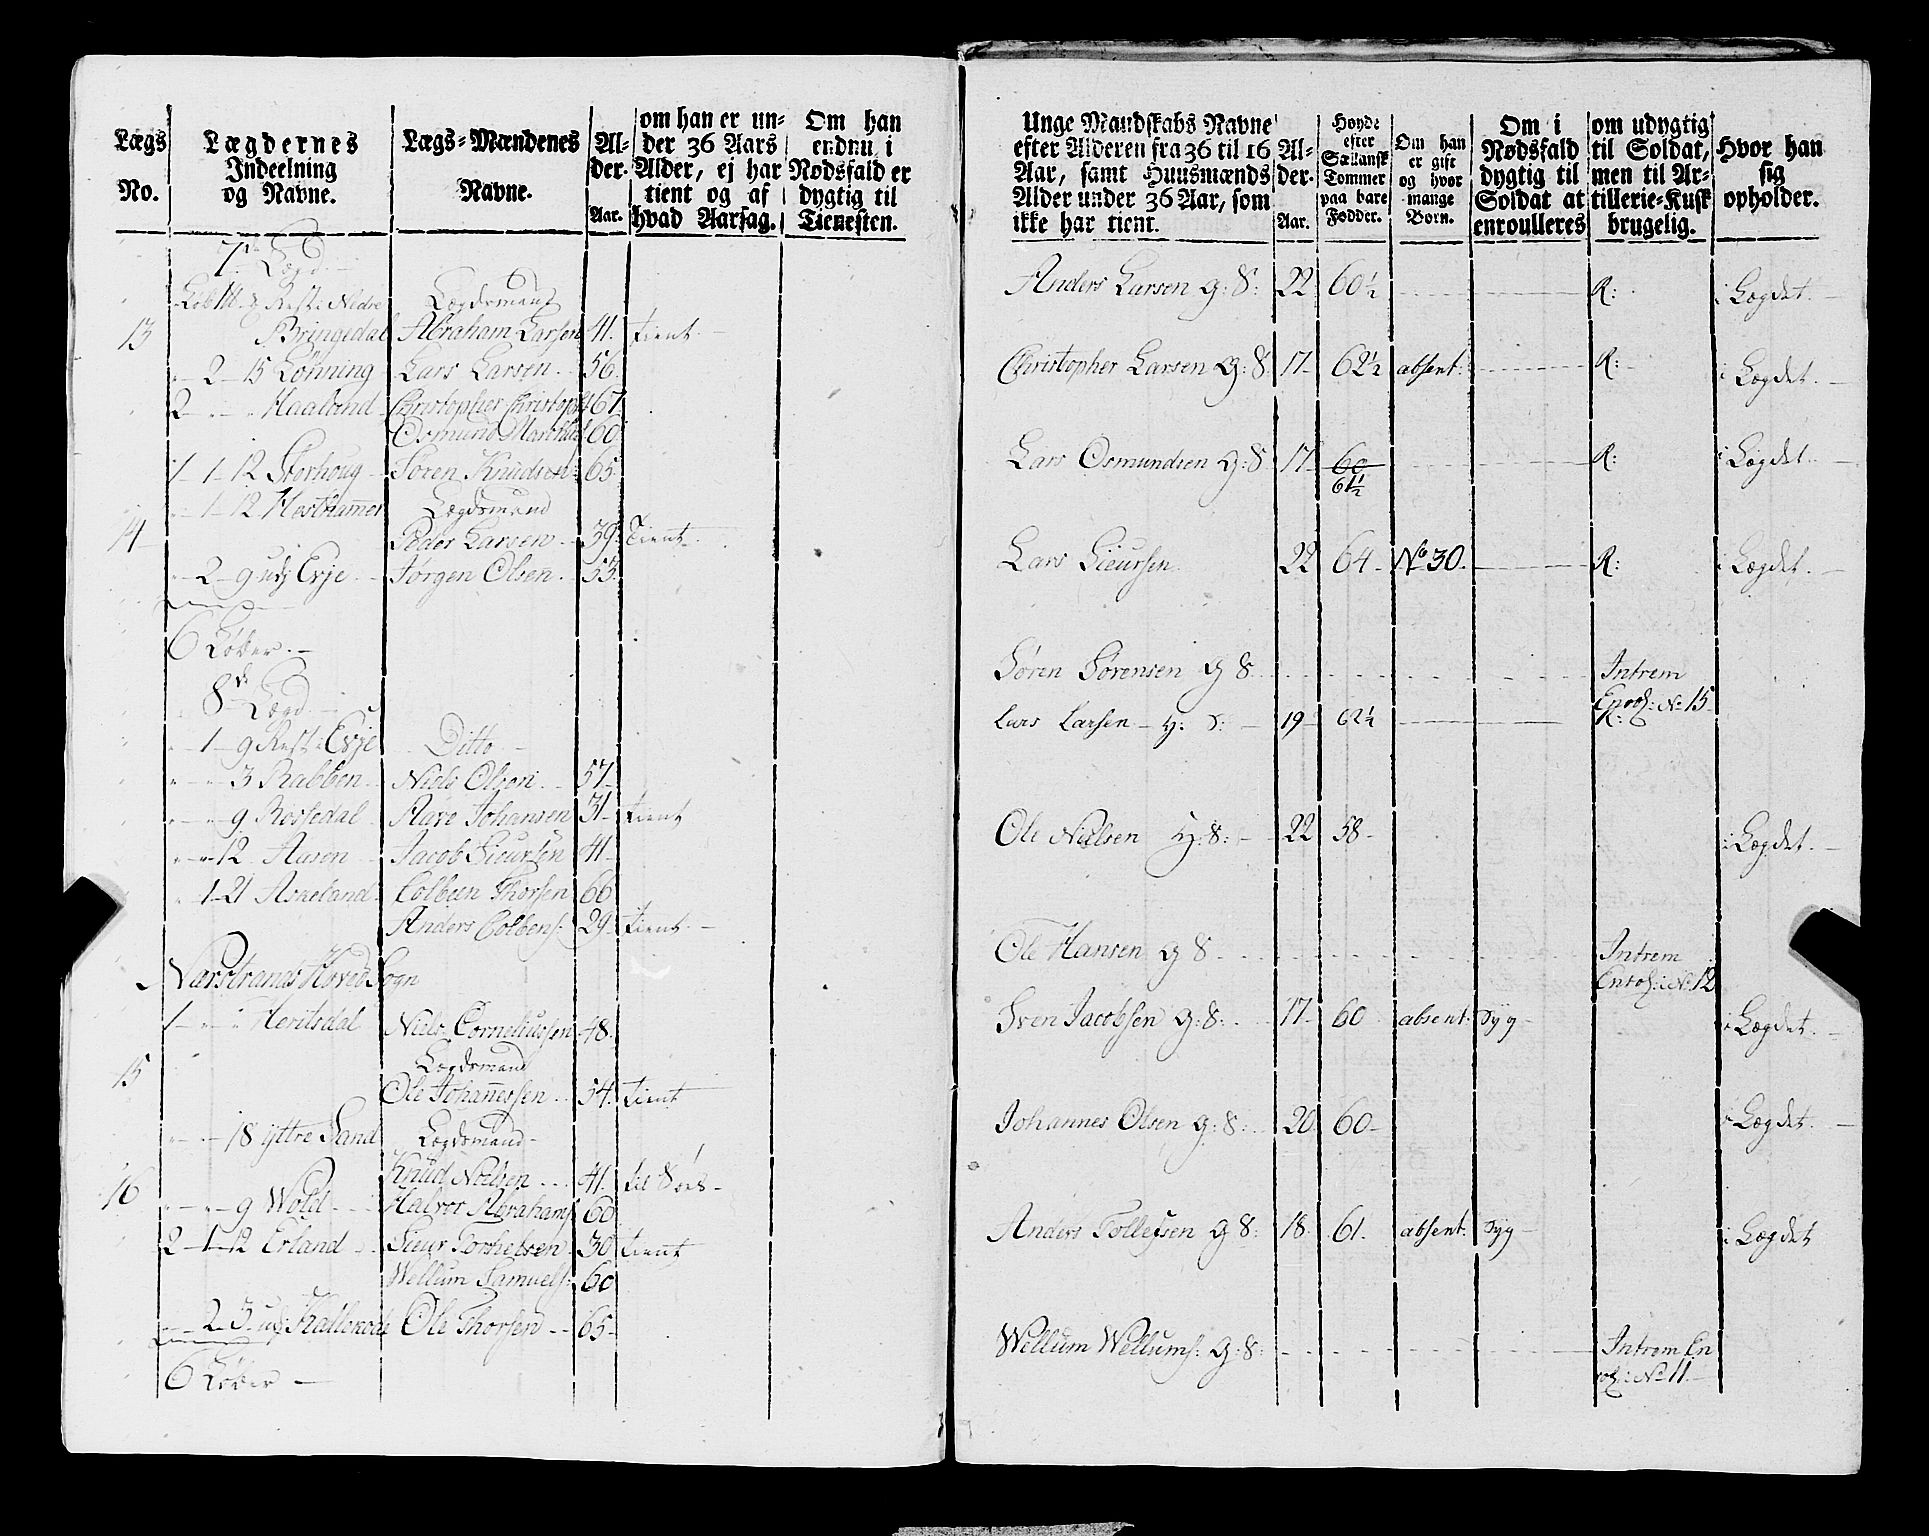 Lægs No.
Lægdernes Indeelning og Navne.
Lægs-Mændenes Navne.
Alder. Aar.
om han er under 36 Aars Alder, ej har tient og af hvad Aarsag.
Om han endnu i Nødsfald er dygtig til Tienesten.
7de Lægd
Nedre Lægdsmand
13 Bringedal Abraham Larsen 41. tient
2 15 Lønning Lars Larsen 56.
2 Haaland Christopher 67
Osmund 60
1 1 12 Storhoug Søren Knudsen 65
1 12 Lægdsmand
14 Peder Larsen 39. Tient
2 9 udj Evje Jørgen Olsen 53.
6 Løber.
8de Lægd
1 9 Rest Evje Ditto
3 Rabben Niels Olsen 57
9 Rossedal Aave Johansen 31 tient
12 Aasen Jacob Sieursen 41
1 21 Askeland Colbeen Thorsen 66
Anders Colbens: 29 tient
Nærstrands Hoved Sogn
1 Heritsdal Niels Corneliussen 48.
15 Lægdsmand
Ole Johannessen 54. tient
18 yttre Sand Lægdsmand
16 Knud Nielsen 41.
9 Wold Halvor Abrahams 60
2 1 12 Erland Sieur Torkelsen 30 tient
Wellum Samuels: 60
2 3 udj Ole Thorsen 65
6 Løber
Unge Mandskabs Navne efter Alderen fra 36 til 16 Aar, samt Huusmænds Alder under 36 Aar, som ikke har tient.
Alder. Aar.
Høyde efter Sællansk Tommer paa bare Fødder.
Om han er gift og hvor mange Børn.
Om i Nødsfald dygtig til Soldat at enroulleres
om udygtig til Soldat, men til Artillerie-Kusk brugelig.
Hvor han sig opholder.
Anders Larsen g: S: 22 60½ R: i Lægdet.
Christopher Larsen g: S 17 62½ absent R: i Lægdet.
Lars Osmundsen g: S 17 60 R: i Lægdet.
61½
Lars Sieursen 22 64 No 30. R: i Lægdet.
Søren Sørensen g S Intrem
No 15
Lars Larsen 19 62½ R:
Ole Nielsen g: S: 22 58 i Lægdet.
Ole Hansen g S Intrem
No 12
Sven Jacobsen g: S: 17 60 absent: syg i Lægdet.
Johannes Olsen g: S: 20 60 i Lægdet.
Anders Tollefsen g S: 18 61. absent: syg i Lægdet
Wellum Wellums: g: S: Intrem En
No 11.